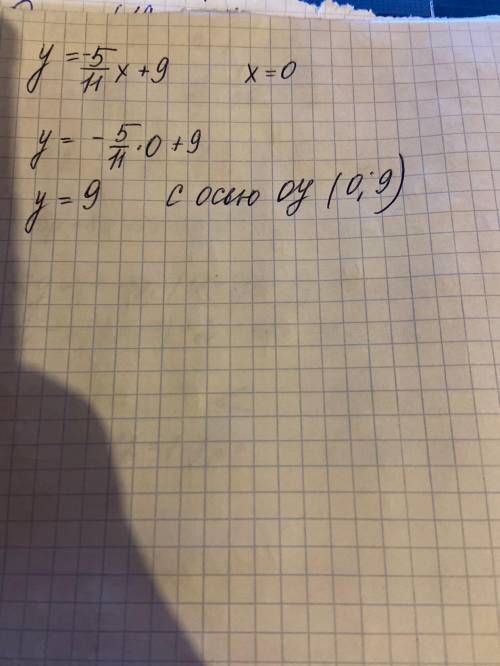 y = -5/11 x + 9 x = 0
y = - 5/11 · 0 + 9
y = 9 с осью оу (0; 9)